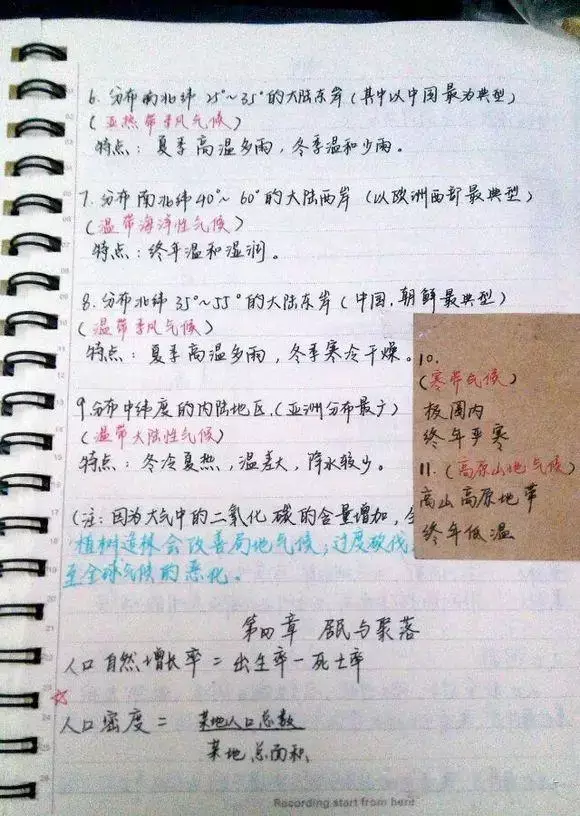 6. 分布南北纬 25°~35°的大陆东岸(其中以中国最为典型)
(亚热带季风气候)
特点:夏季高温多雨,冬季温和少雨。
7. 分布南北纬40°~60°的大陆西岸(以欧洲西部最典型)
(温带海洋性气候)
特点:终年温和湿润。
8. 分布北纬 35°~55°的大陆东岸(中国,朝鲜最典型)
(温带季风气候)
特点:夏季高温多雨,冬季寒冷干燥。
9.分布中纬度的内陆地区,(亚洲分布最广)
(温带大陆性气候)
特点:冬冷夏热,温差大,降水较少。
(注:因为大气中的二氧化碳的含量增加,全
植树造林会改善局地气候;过度砍伐,
至全球气候的恶化。
10.
(寒带气候)
极圈内
终年严寒
11.(高原山地气候)
高山高原地带
终年低温
第四章 居民与聚落
人口自然增长率=出生率-死亡率
人口密度= 某地人口总数
某地总面积
Recording start from here